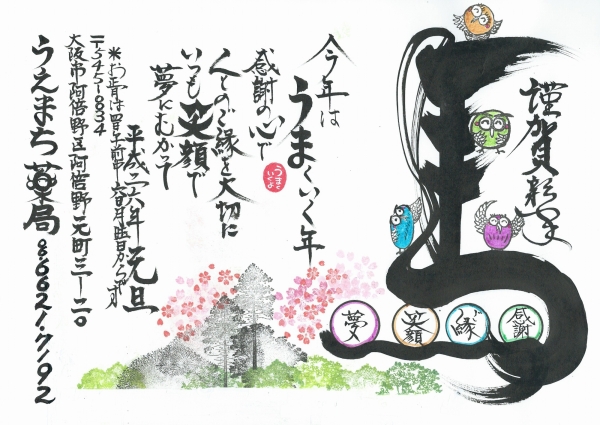 謹賀新年
馬
感謝
ご縁
笑顔
夢
今年は
うまくいく年
うまくいくよ
感謝の心で
人とのご縁を大切に
いつも笑顔で
夢にむかって
平成二六年 元旦
*お正月は四日午前中 六日月曜日からです
〒545-0034
大阪市阿倍野区阿倍野元町三-二〇
うえまち薬局
066621.7192